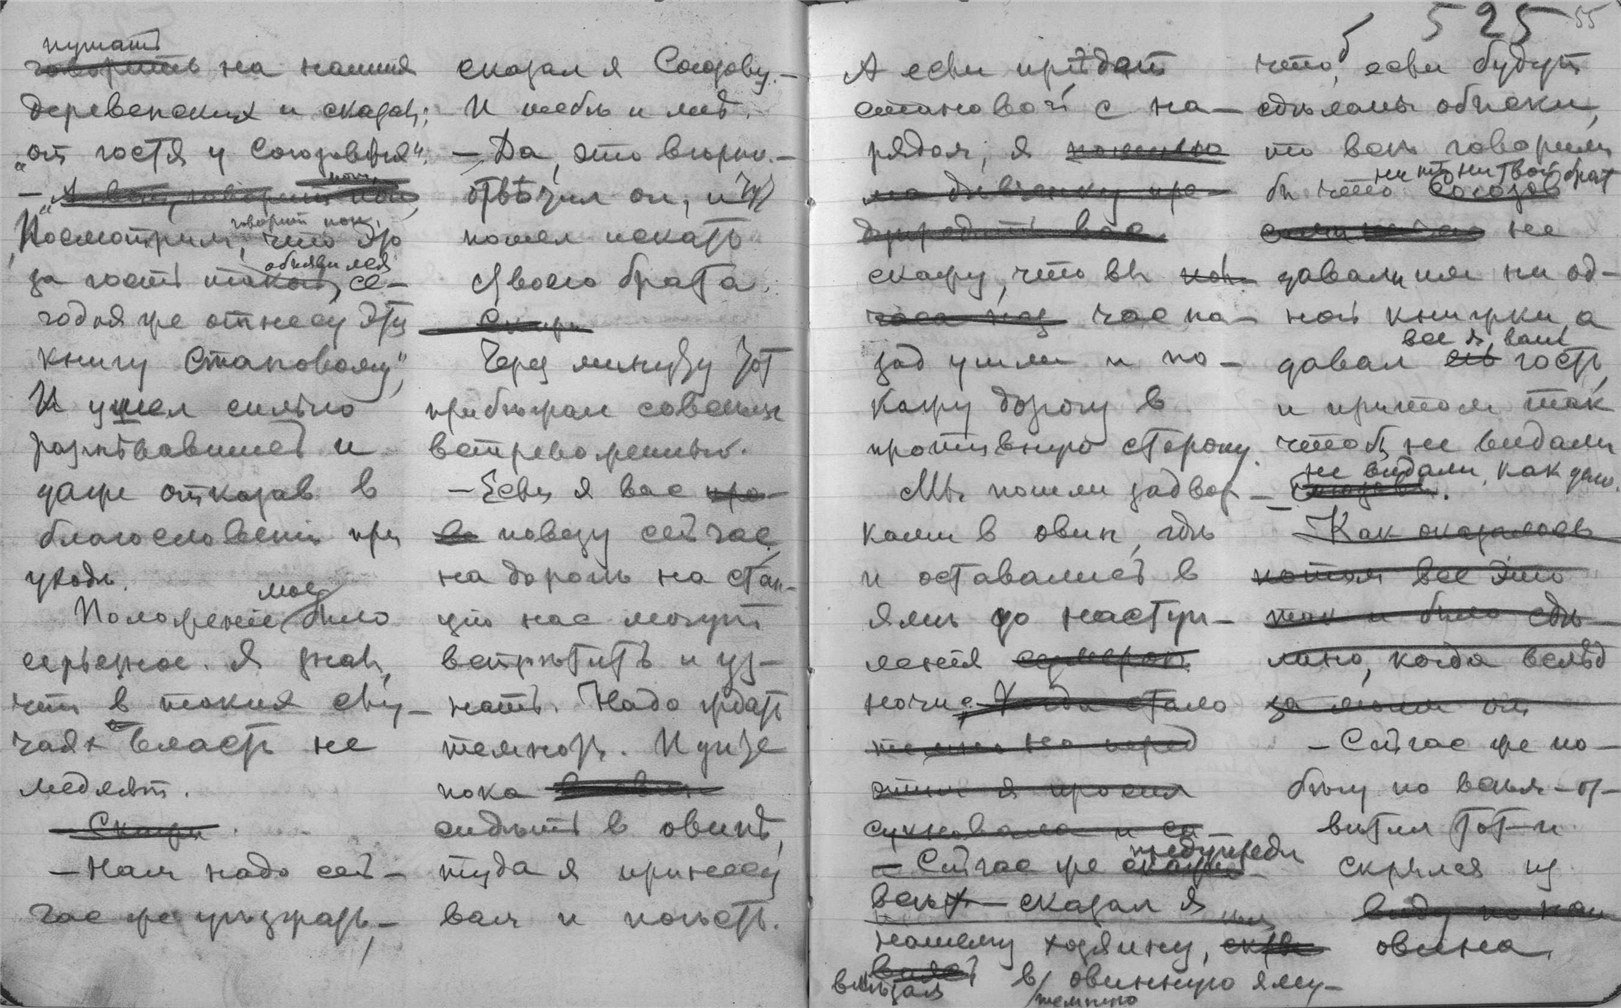 525 55
пугать
говорить на наших
деревенских и сказал:
„от гостя у Союзовых“.
— „А вот, говорит поп,
Посмотрим, говорит поп, что это
за гость такой объявился, се-
годня же отнесу эту
книгу становому“,
И ушел сильно
разгневавшись и
даже отказав в
благословении при
уходе.
Положение мое было
серьезное. Я знал,
что в таких слу-
чаях власть не
медлят.
Скоро
— Нам надо сей-
час же уезжать, —
сказал я Союзову. —
И тебе и мне.
— Да, это верно. —
отвѣтил он, и
пошел искать
своего брата.
Скоро
Через минуту тот
прибежал совсем
встревоженный.
— Если я вас
повезу сейчас,
на дороге на стан-
цию нас могут
встретить и уз-
нать. Надо ждать
темноты. Идите
пока
сидеть в овинѣ,
туда я принесу
вам и поесть.
А если приедет
становой с на-
рядом, я
скажу, что вы
час на-
зад ушли и по-
кажу дорогу в
противную сторону.
Мы пошли задвор-
ками в овин, где
и оставались в
яме до наступ-
ления сумерок
ночи. Когда стало
темно но перед
этим я просил
— Сейчас же предупреди
всех — сказал я
нашему хозяину,
влезая в овинную яму —
темную
чтоб, если будут
сделаны обыски,
то все говорили
бы что ни ты ни твой брат
не
давали им ни од-
ной книжки, а
давал все я, ваш гость,
и притом так
чтоб не видали
не видали, как даю.
Как оказалось
потом все это
так и было сде-
лано, когда вслѣд
за мной он
— Сейчас же по-
бегу по всем — от-
вѣтил тот и
скрылся из
виду из на
овина.